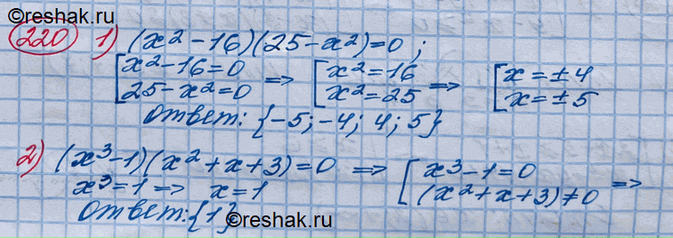 ©reshak.ru
220 1) (x²-16)(25-x²)=0;
[x²-16=0 25-x²=0 => [x²=16 x²=25 => [x=±4 x=±5
Ответ: {-5; -4; 4; 5}
2) (x³-1)(x²+x+3)=0 => [x³-1=0 (x²+x+3)≠0 =>
x³=1 => x=1
Ответ: {1}
©reshak.ru